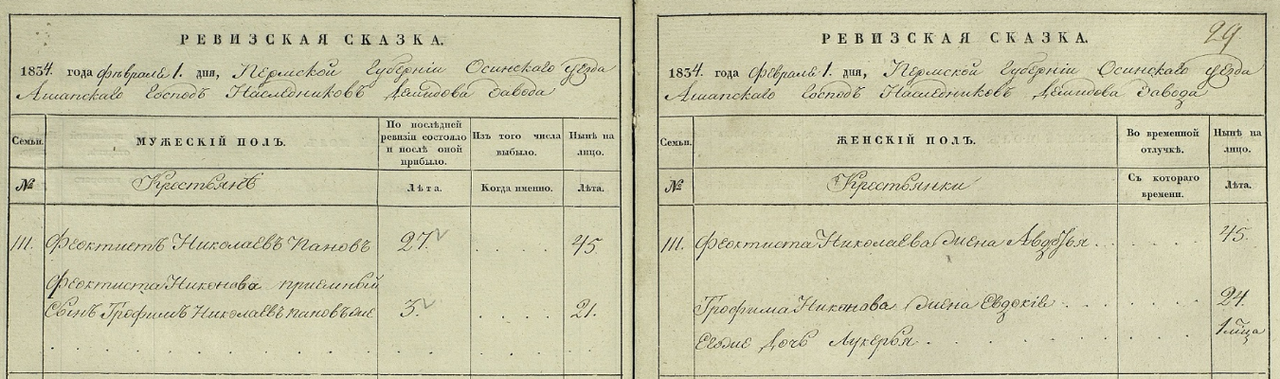 РЕВИЗСКАЯ СКАЗКА.
1834. года февраля 1. дня, Пермской Губерніи Осинскаго уезда
Ашапскаго Господъ Наследниковъ Демидова Завода
Семьи.
МУЖЕСКІЙ ПОЛЪ.
По послѣдней ревизіи состояло и послѣ оной прибыло.
Изъ того числа выбыло.
Нынѣ на лицо.
№
Крестьянъ
Лѣта.
Когда именно.
Лѣта.
111. Феоктистъ Николаевъ Пановъ 27. 45
Феоктиста Никонова приемный
Сынъ Трофимъ Николаевъ Пановъ же 3. 21.
29
РЕВИЗСКАЯ СКАЗКА.
1834. года февраля 1. дня, Пермской Губерніи Осинскаго уезда
Ашапскаго Господъ Наследниковъ Демидова Завода
Семьи.
ЖЕНСКІЙ ПОЛЪ.
Во временной отлучкѣ.
Нынѣ на лицо.
№
Крестьянки
Съ котораго времени.
Лѣта.
111. Феоктиста Николаева жена Авдотья 45.
Трофима Никонова жена Евдокіе 24.
Егоже Дочь Лукерья 1 м̃ца